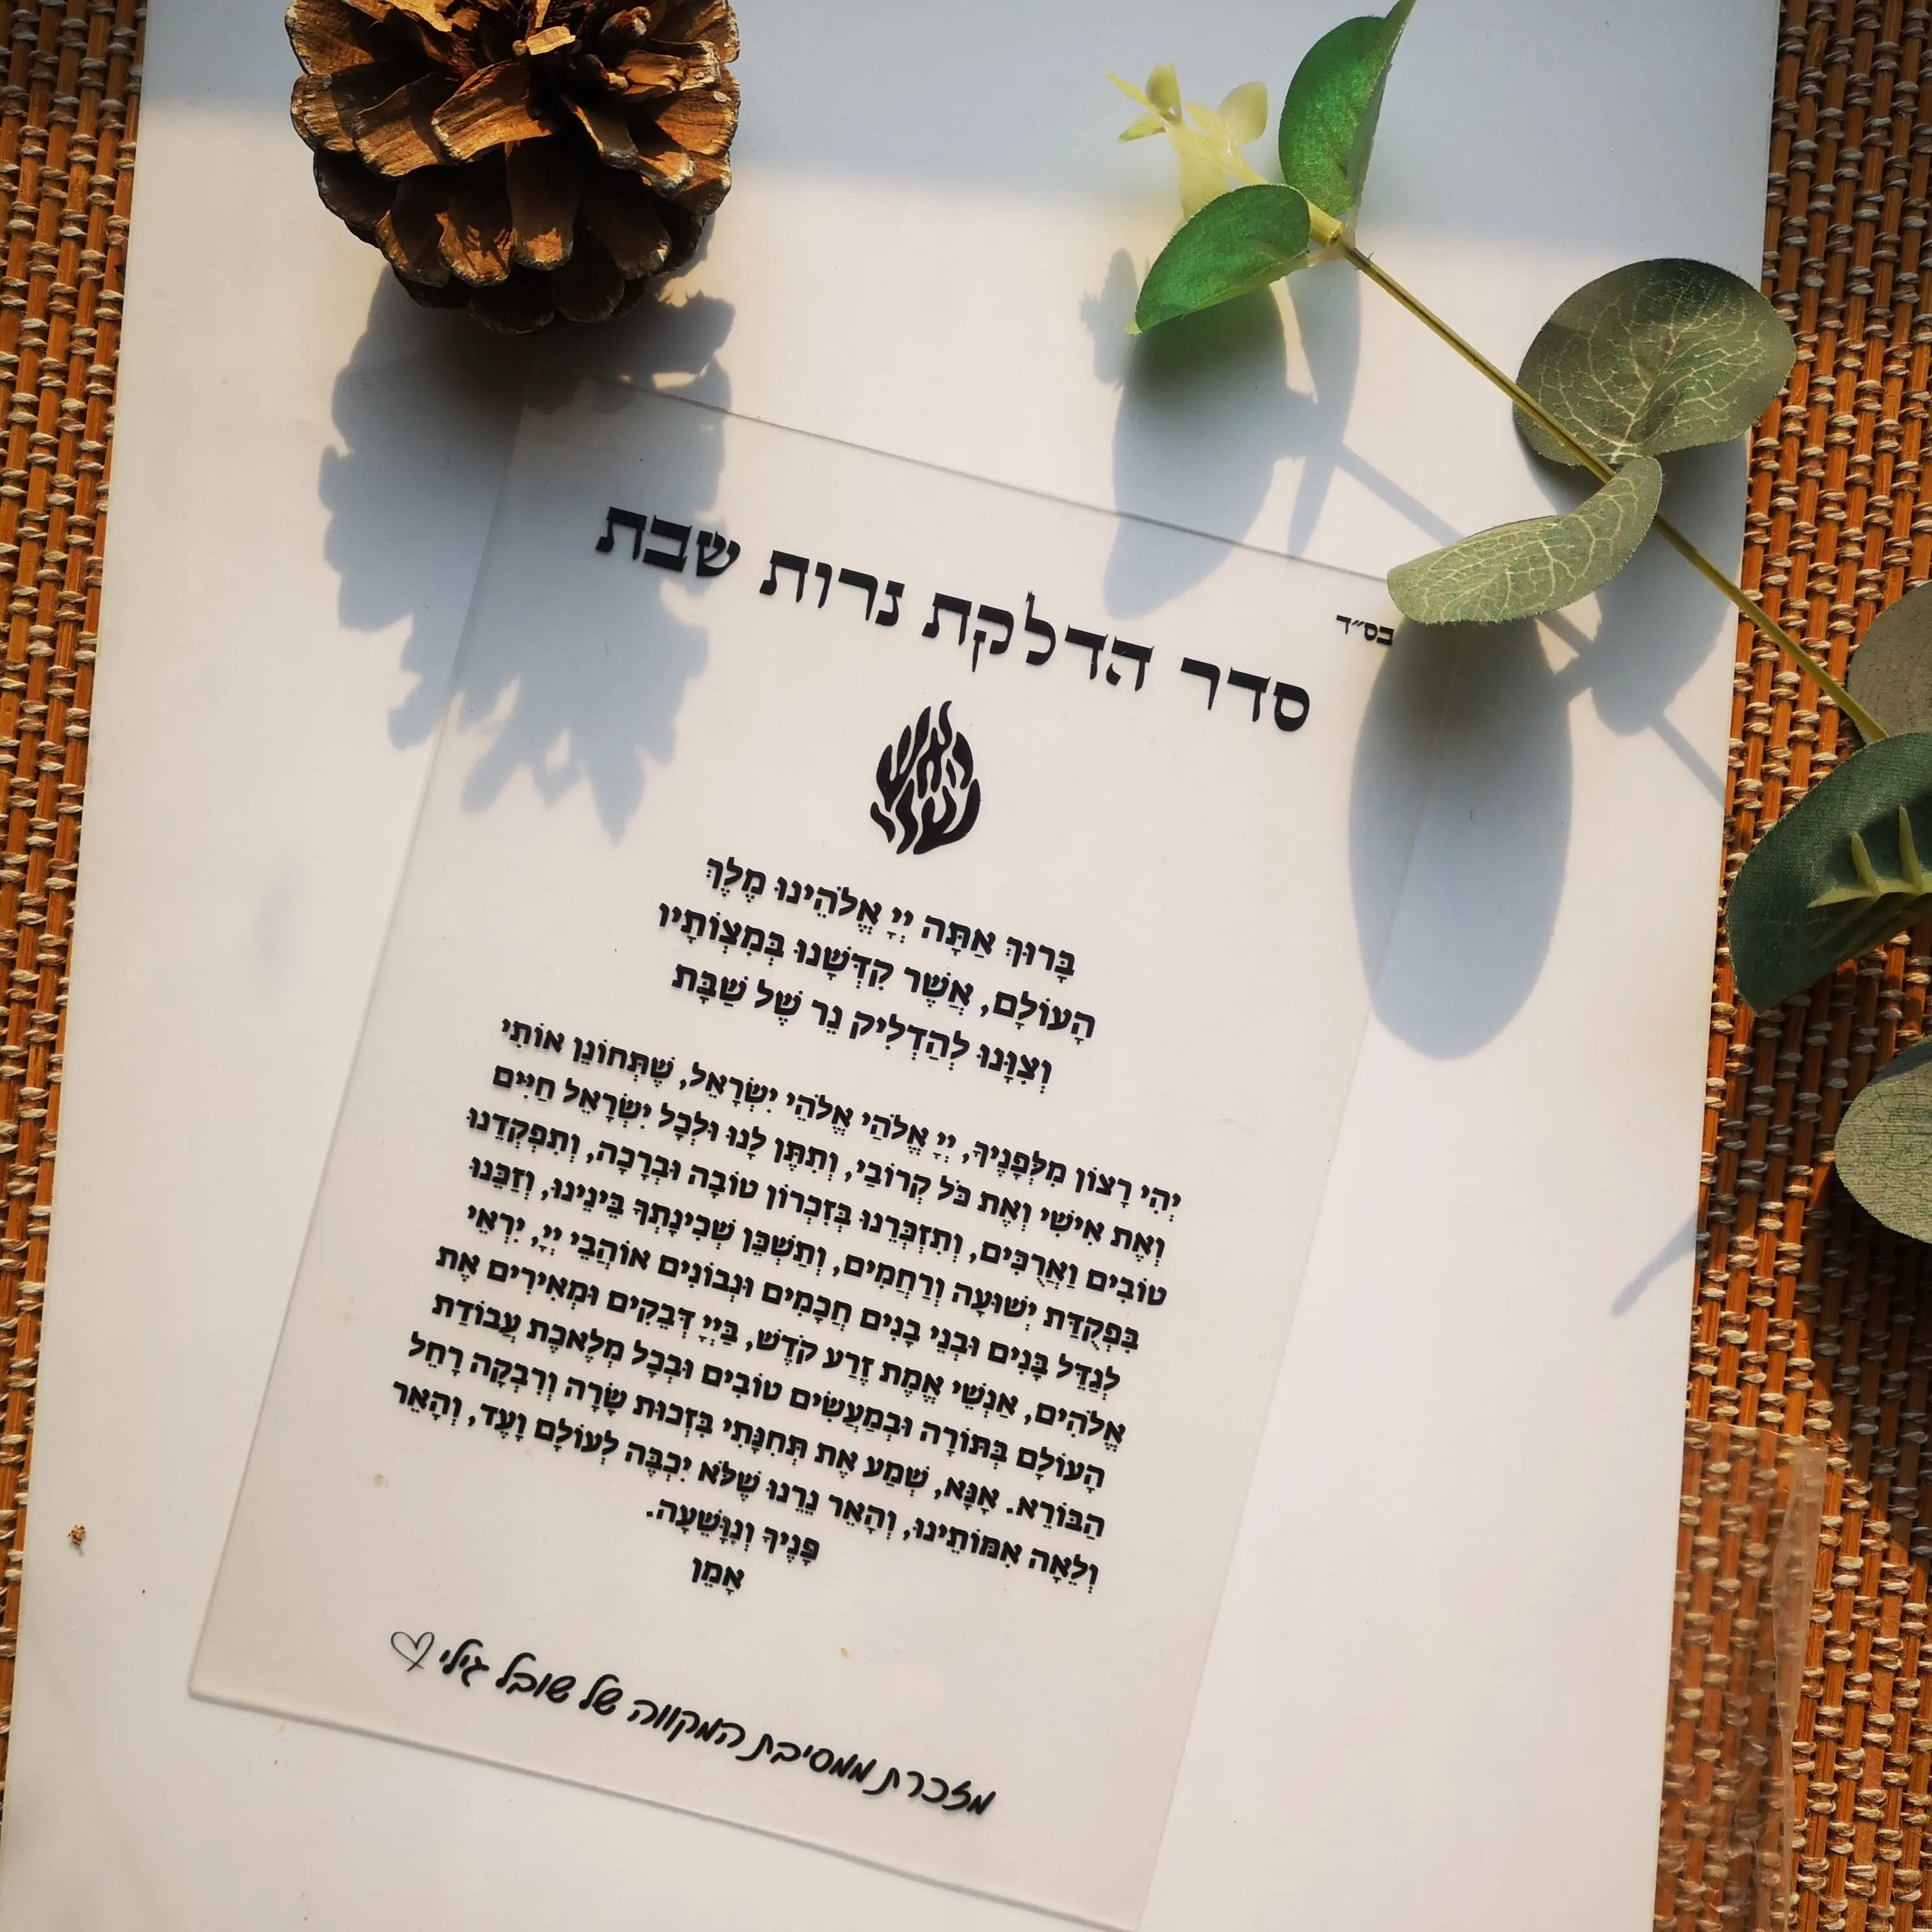 בס״ד
סדר הדלקת נרות שבת
בָּרוּךְ אַתָּה יְיָ אֱלֹהֵינוּ מֶלֶךְ
הָעוֹלָם, אֲשֶׁר קִדְּשָׁנוּ בְּמִצְוֹתָיו
וְצִוָּנוּ לְהַדְלִיק נֵר שֶׁל שַׁבָּת
יְהִי רָצוֹן מִלְּפָנֶיךָ, יְיָ אֱלֹהַי אֱלֹהֵי יִשְׂרָאֵל, שֶׁתְּחוֹנֵן אוֹתִי
וְאֶת אִישִׁי וְאֶת כֹּל קְרוֹבַי, וְתִתֶּן לָנוּ וּלְכָל יִשְׂרָאֵל חַיִּים
טוֹבִים וַאֲרֻכִּים, וְתִזְכְּרֵנוּ בְּזִכְרוֹן טוֹבָה וּבְרָכָה, וְתִפְקְדֵנוּ
בִּפְקֻדַּת יְשׁוּעָה וְרַחֲמִים, וְתַשְׁכֵּן שְׁכִינָתְךָ בֵּינֵינוּ, וְזַכֵּנוּ
לְגַדֵּל בָּנִים וּבְנֵי בָנִים חֲכָמִים וּנְבוֹנִים אוֹהֲבֵי יְיָ, יִרְאֵי
אֱלֹהִים, אַנְשֵׁי אֱמֶת זֶרַע קֹדֶשׁ, בַּיְיָ דְּבֵקִים וּמְאִירִים אֶת
הָעוֹלָם בְּתּוֹרָה וּבְמַעֲשִׂים טוֹבִים וּבְכָל מְלֶאכֶת עֲבוֹדַת
הַבּוֹרֵא. אָנָּא, שְׁמַע אֶת תְּחִנָּתִי בִּזְכוּת שָׂרָה וְרִבְקָה רָחֵל
וְלֵאָה אִמּוֹתֵינוּ, וְהָאֵר נֵרֵנוּ שֶׁלֹּא יִכְבֶּה לְעוֹלָם וָעֶד, וְהָאֵר
פָּנֶיךָ וְנִוָּשֵׁעָה.
אָמֵן
מזכרת ממסיבת המקווה של שובל גילי